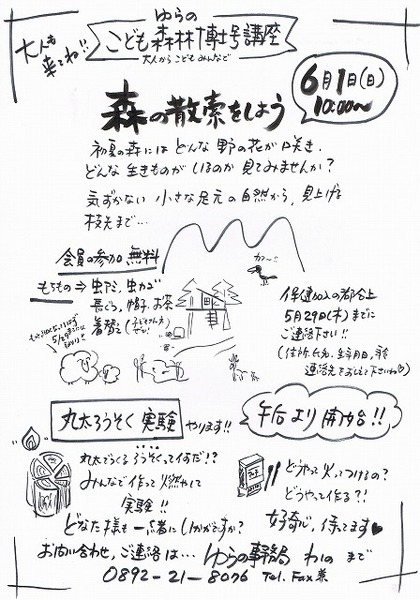 大人も
来てね!!
ゆらの
こども森林博士号講座
大人からこどもみんなで
6月1日(日)
10:00~
森の散索をしよう
初夏の森にはどんな野の花が咲き、
どんな生きものがいるのか見てみませんか?
気ずかない小さな足元の自然から、見上げる
枝先まで…
会員の参加無料
もちもの⇒虫アミ、虫カゴ
長ぐつ、帽子、お茶
着替え
カァ~
保険加入の都合上
5月29日(木)までに
ご連絡下さい!!
丸太ろうそく実験
やります!!
午后より開始!!
丸太でつくるろうそくって何だ!?
みんなで作って燃やして
実験!!
どうやって火ってつけるの?
どうやって作る?!
どなた様も一緒にいかがですか?
好奇心、待ってます♥
お問い合わせ、ご連絡は…ゆらの事務局
まで
0892-21-8076 Tel.Fax兼